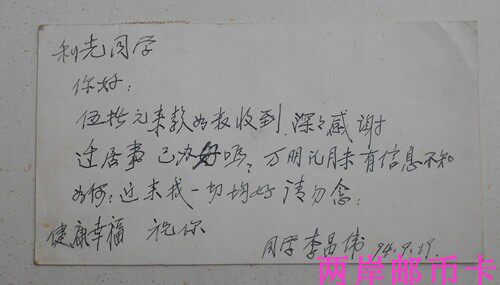 利先同学
你好:
伍拾元来款如数收到 深深感谢
过居事已办好吗, 万明 月未有信息不知
如何; 近来我一切均好 请勿念。
健康幸福 祝你
同学 李昌伟 94.9.19
两岸邮币卡